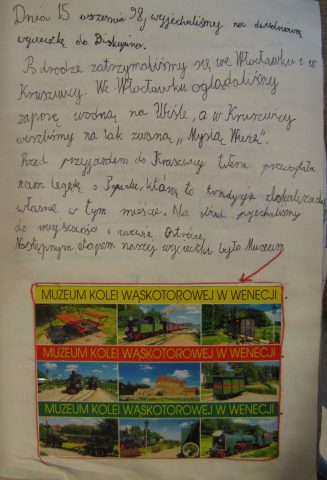 Dnia 15 września 98, wyjechaliśmy na dwudniową
wycieczkę do Biskupina.
Po drodze zatrzymaliśmy się we Włocławku i w
Kruszwicy. We Włocławku oglądaliśmy
zaporę wodną na Wiśle, a w Kruszwicy
weszliśmy na tak zwaną "Mysią Wieżę".
Przed przyjazdem do Kruszwicy Wera przeczytała
nam legędę o Popielu, którą to tradycja
właśnie w tym mieście. Na obiad pojechaliśmy
do miejscowości i
Następnym etapem naszej wycieczki było Muzeum
MUZEUM KOLEI WĄSKOTOROWEJ W WENECJI
MUZEUM KOLEI WĄSKOTOROWEJ W WENECJI
MUZEUM KOLEI WĄSKOTOROWEJ W WENECJI